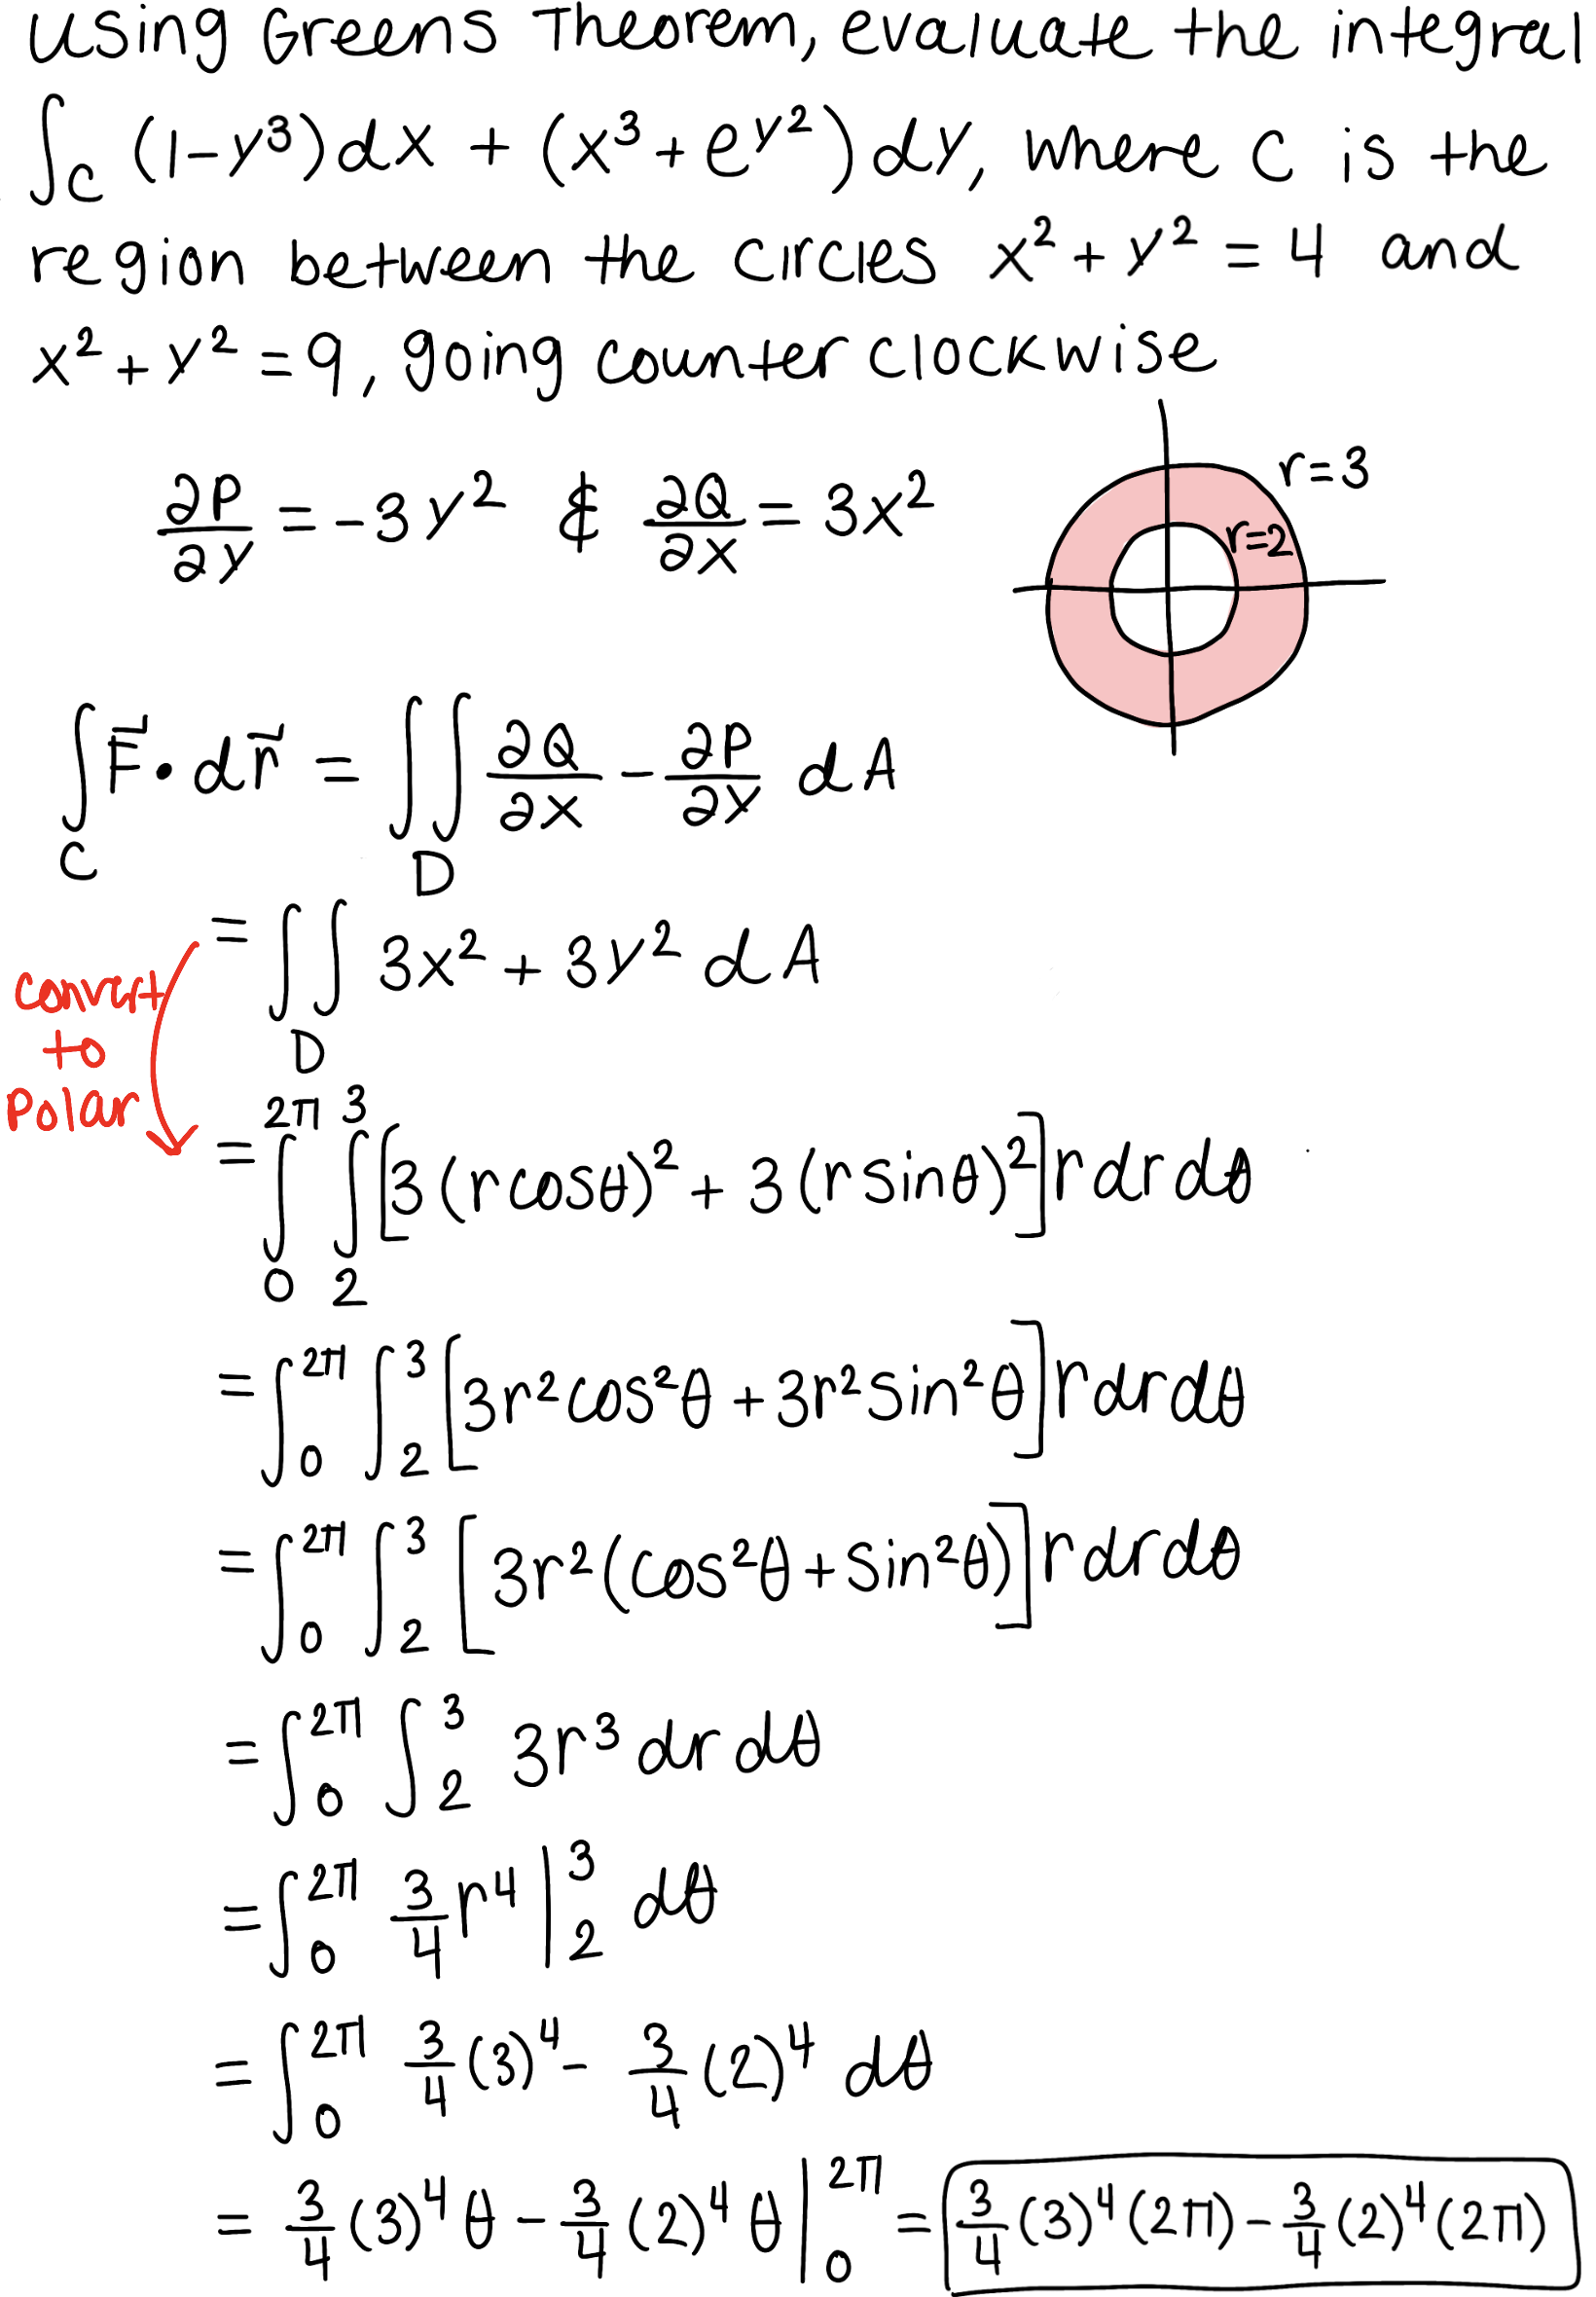 using Greens Theorem, evaluate the integral
∫_C (1-y³)dx + (x³+e^{y²})dy, where C is the
region between the circles x²+y²=4 and
x²+y²=9, going counter clockwise
r=3
∂P/∂y = -3y² & ∂Q/∂x = 3x²
r=2
∫_C F⃗•dr⃗ = ∬_D ∂Q/∂x - ∂P/∂y dA
= ∬_D 3x²+3y² dA
convert
to
Polar
= ∫_0^{2π} ∫_2^3 [3(rcosθ)²+3(rsinθ)²]rdrdθ
= ∫_0^{2π} ∫_2^3 [3r²cos²θ+3r²sin²θ]rdrdθ
= ∫_0^{2π} ∫_2^3 [3r²(cos²θ+sin²θ)]rdrdθ
= ∫_0^{2π} ∫_2^3 3r³drdθ
= ∫_0^{2π} 3/4 r⁴ |_2^3 dθ
= ∫_0^{2π} 3/4(3)⁴ - 3/4(2)⁴ dθ
= 3/4(3)⁴θ - 3/4(2)⁴θ |_0^{2π} = 3/4(3)⁴(2π) - 3/4(2)⁴(2π)